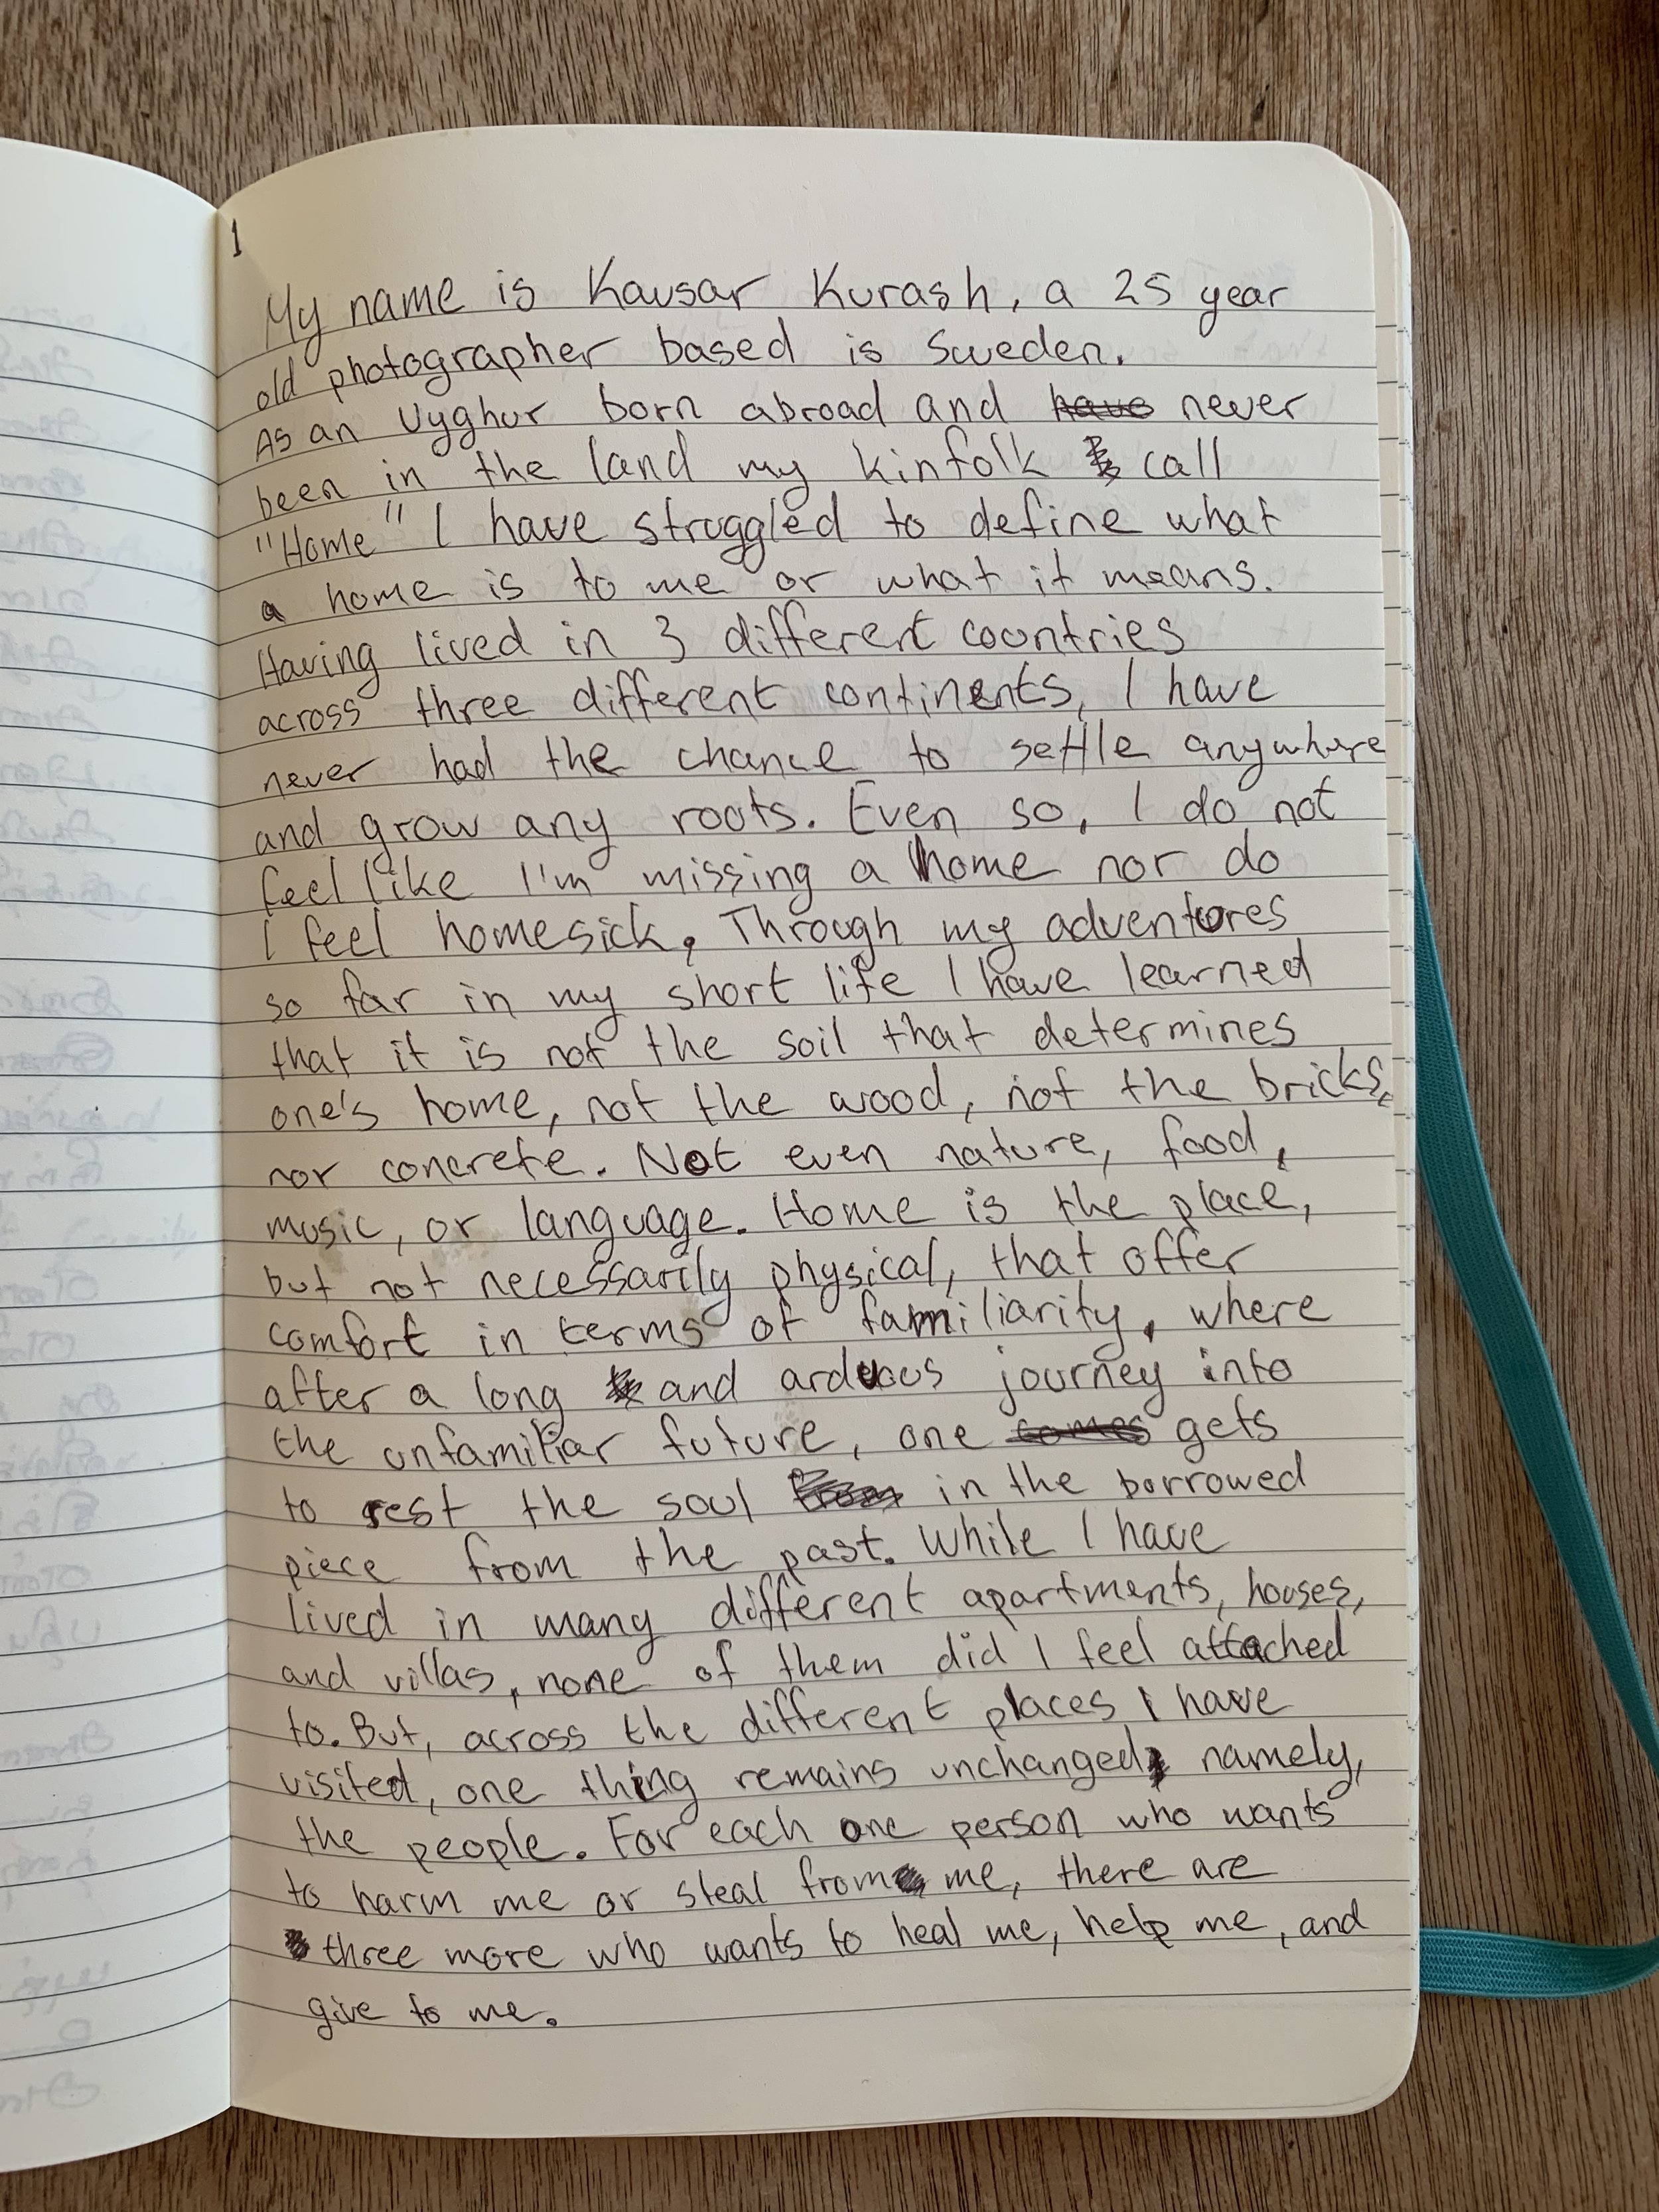 1
My name is Kausar Kurash, a 25 year
old photographer based is Sweden.
As an Uyghur born abroad and have never
been in the land my kinfolk call
"Home" I have struggled to define what
a home is to me or what it means.
Having lived in 3 different countries
across three different continents, I have
never had the chance to settle anywhere
and grow any roots. Even so, I do not
feel like I'm missing a home nor do
I feel homesick. Through my adventures
so far in my short life I have learned
that it is not the soil that determines
one's home, not the wood, not the bricks,
nor concrete. Not even nature, food,
music, or language. Home is the place,
but not necessarily physical, that offer
comfort in terms of familiarity, where
after a long and arduous journey into
the unfamiliar future, one comes gets
to rest the soul from in the borrowed
piece from the past. While I have
lived in many different apartments, houses,
and villas, none of them did I feel attached
to. But, across the different places I have
visited, one thing remains unchanged, namely,
the people. For each one person who wants
to harm me or steal from me, there are
three more who wants to heal me, help me, and
give to me.